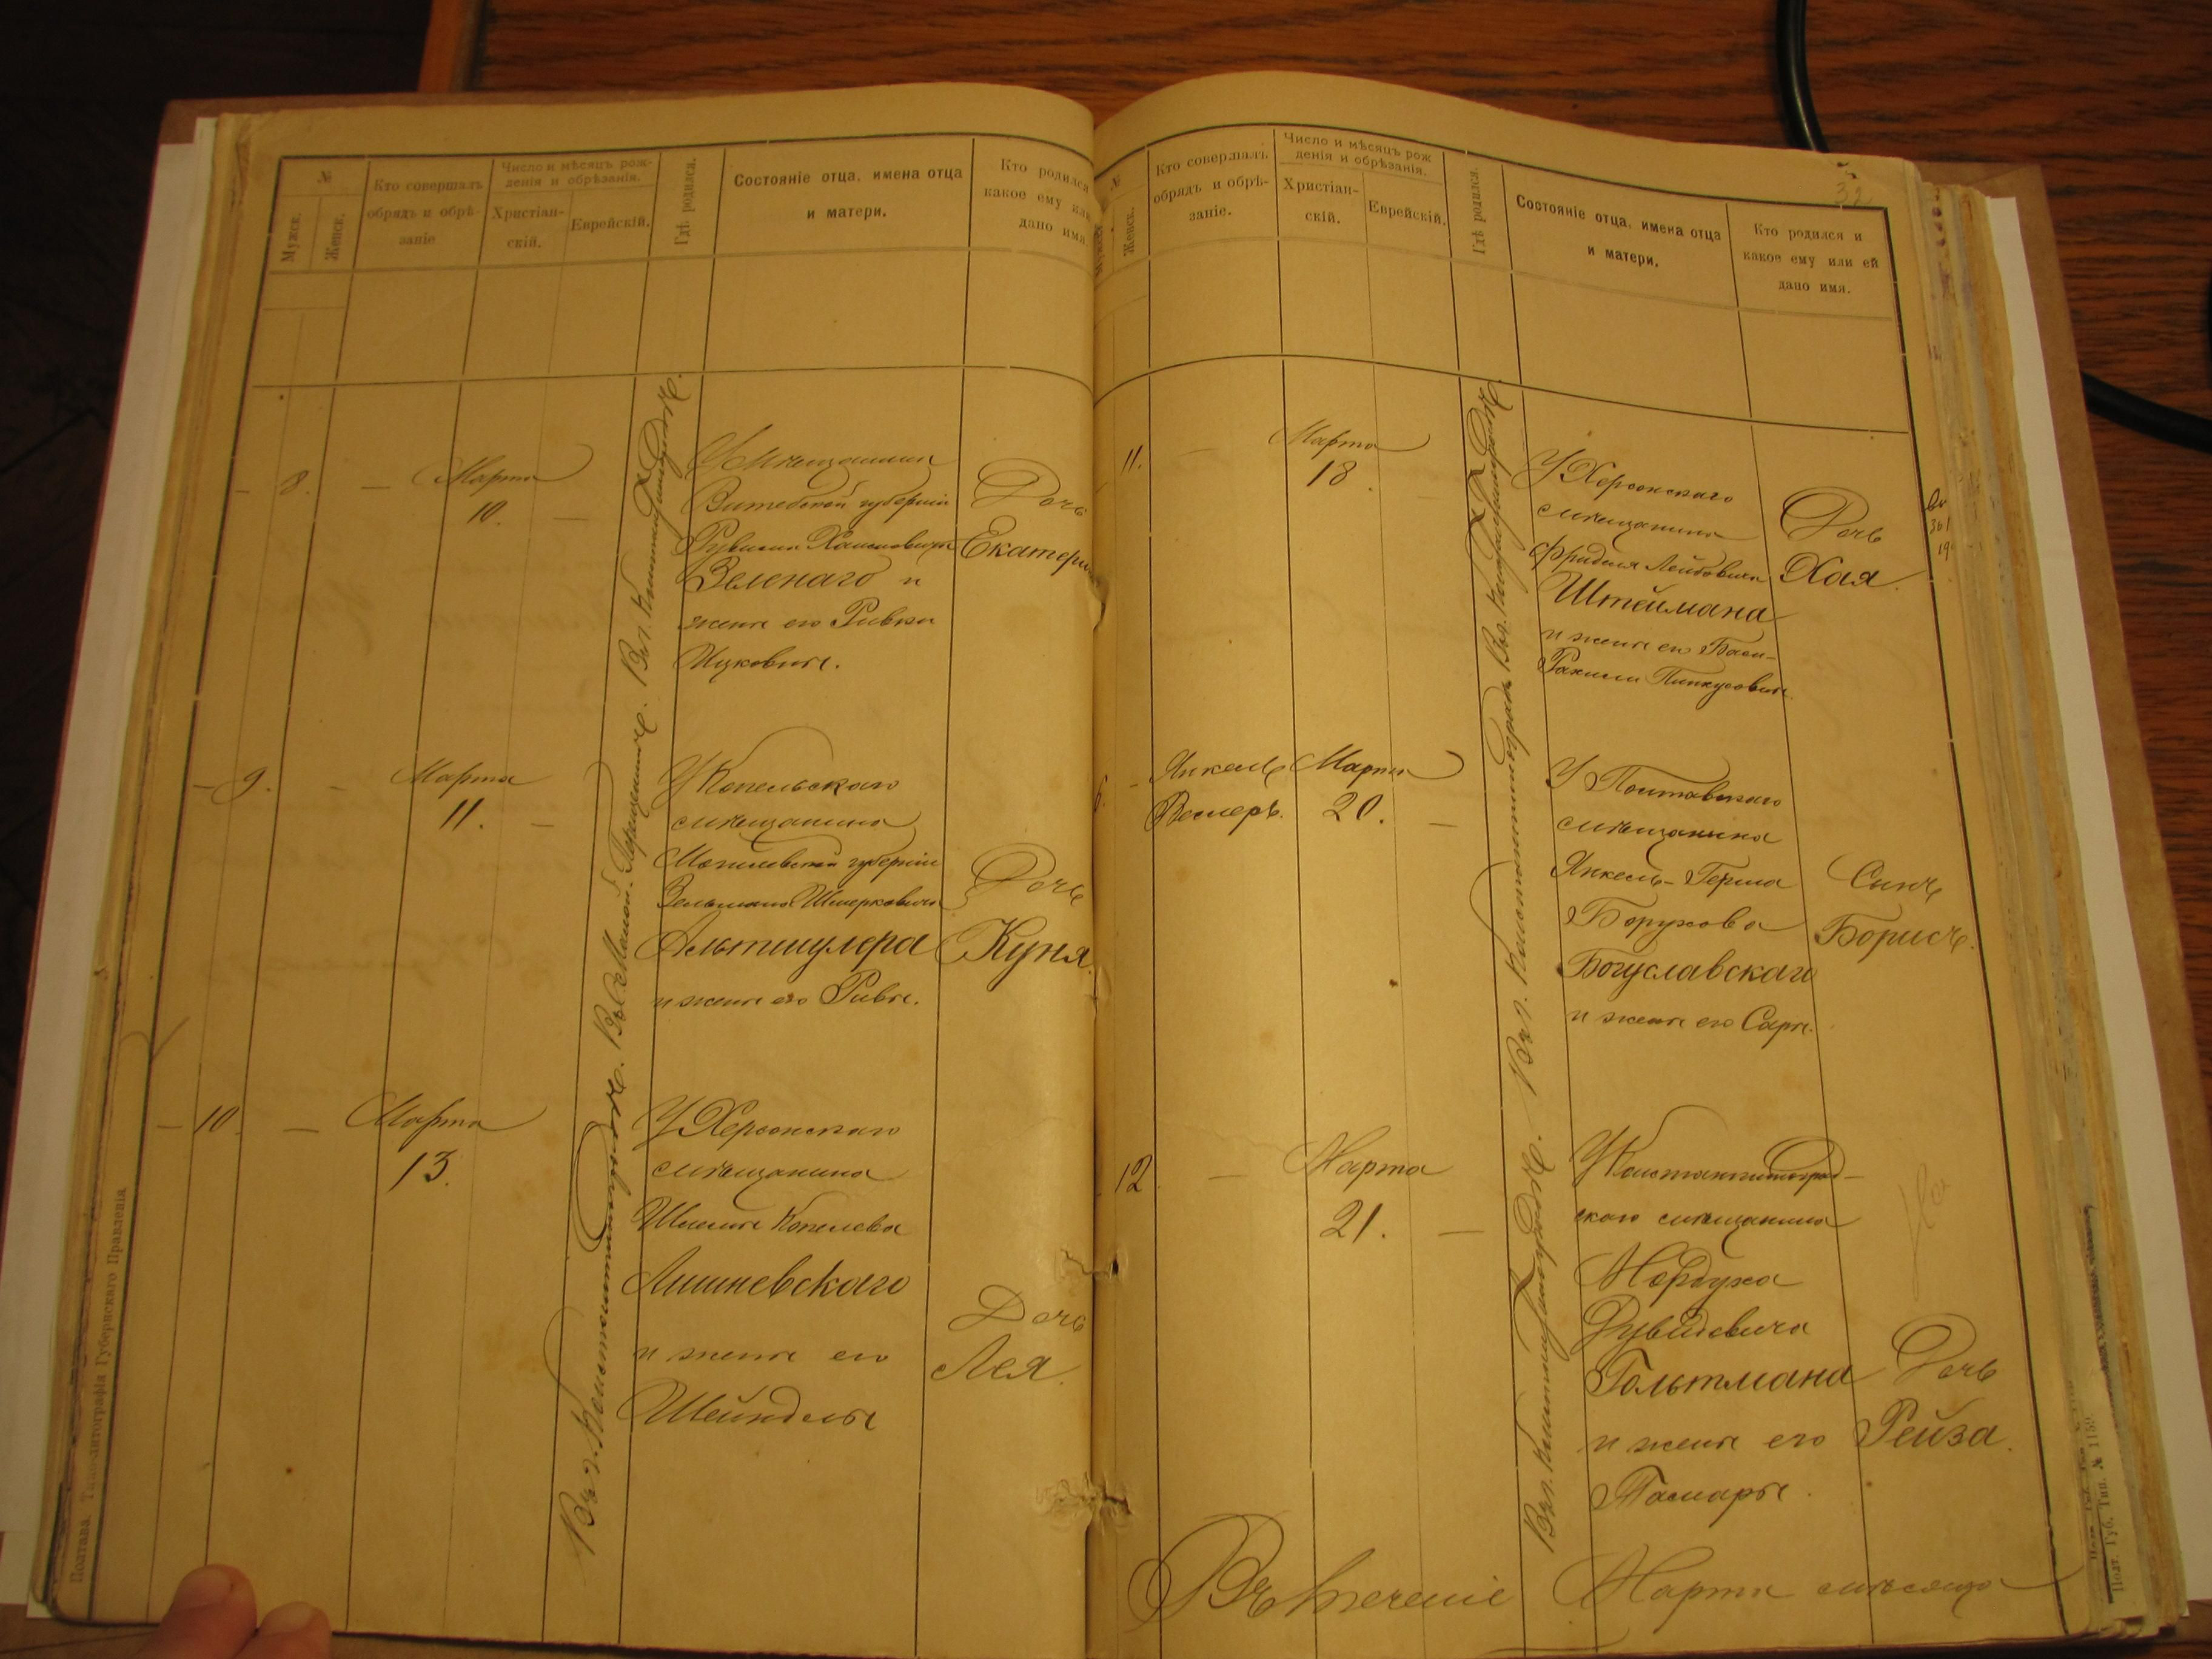 №
Мужеск.
Женск.
Кто совершалъ
обрядъ и обрѣ-
заніе
Число и мѣсяцъ рож-
денія и обрѣзанія.
Христіан-
скій.
Еврейскій.
Гдѣ родился.
Состояніе отца, имена отца
и матери.
Кто родился
какое ему или
дано имя.
— 8. —
Марта
10. —
Въ г. Константиноградѣ.
У мѣщанина
Витебской губерніи
Рувина Хаимовича
Зеленаго и
жены его Ривки
Ицковны.
Дочь
Екатери
— 9. —
Марта
11. —
У Копельскаго
мѣщанина
Могилевской губерніи
Зельмана Шмерковича
Альтшулера
и жены его Ривы.
Дочь
Куня.
— 10. —
Марта
13.
Въ г. Константиноградѣ.
У Херсонскаго
мѣщанина
Шлемы Копелева
Лишневскаго
и жены его
Шейндлы
Дочь
Лея.
Полтава. Типо-литографія Губернскаго Правленія
32
№
Женск.
Кто совершалъ
обрядъ и обрѣ-
заніе.
Число и мѣсяцъ рож
денія и обрѣзанія.
Христіан-
скій.
Еврейскій.
Гдѣ родился.
Состояніе отца, имена отца
и матери.
Кто родился и
какое ему или ей
дано имя.
11. —
Марта
18.
Въ г. Константиноградѣ.
У Херсонскаго
мѣщанина
Фриделя Лейбовича
Штеймана
и жены его Баси-
Рахили Пинкусовны.
Дочь
Хая.
6. —
Янкель
Веслеръ.
Марта
20. —
Въ г. Константиноградѣ.
У Полтавскаго
мѣщанина
Янкель-Герша
Борухова
Богуславскаго
и жены его Сары.
Сынъ
Борисъ.
12 —
Марта
21. —
Въ г. Константиноградѣ.
У Константиноград-
скаго мѣщанина
Мордуха
Дувидовича
Гольтмана
и жены его
Тамары.
Дочь
Рейза.
Въ теченіе Марта мѣсяца
Полт. Губ. Тип. № 1159